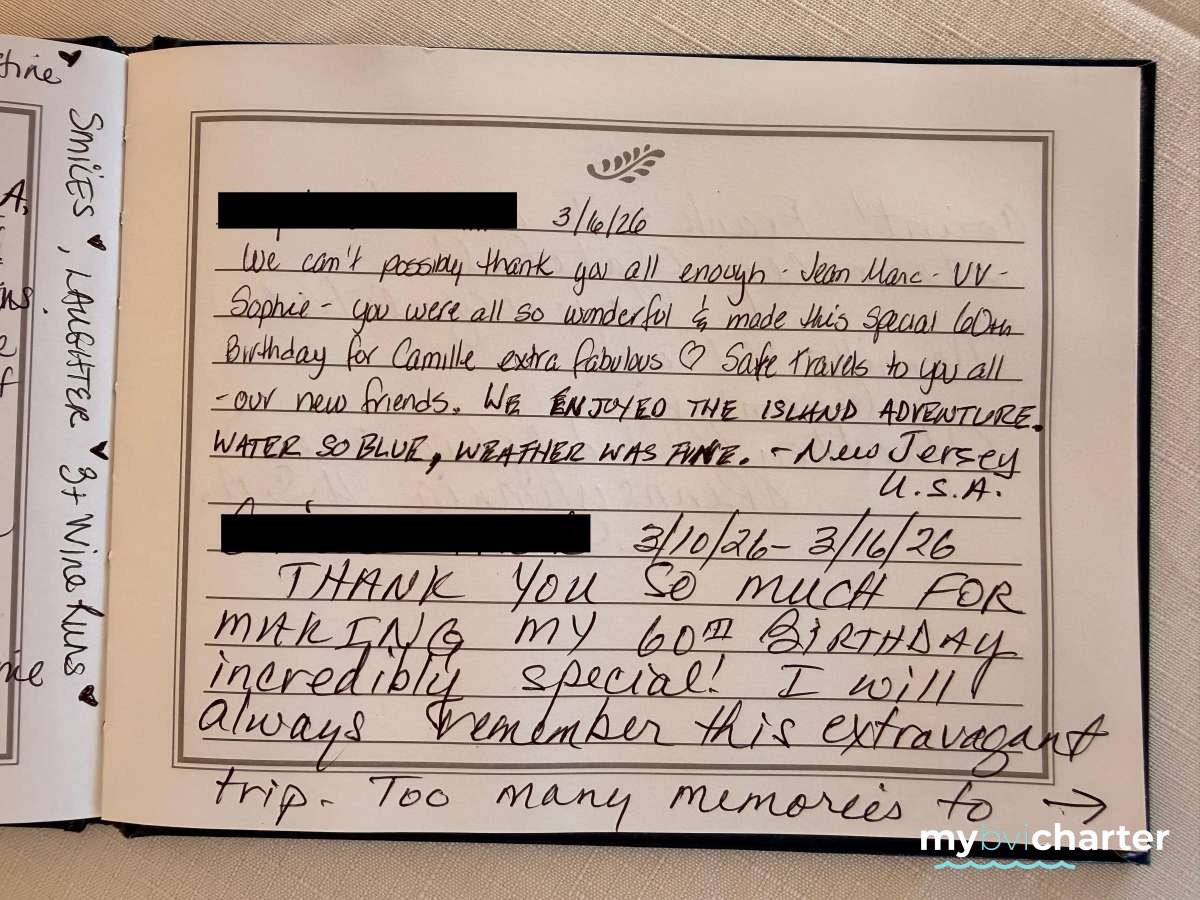 stine ♥
SMiLES ♥, LAUGHTER ♥ 3+ Wine Runs ♥
A,
3/16/26
We can't possibly thank you all enough - Jean Marc - VV -
Sophie - you were all so wonderful & made this special 60th
Birthday for Camille extra fabulous ♡ Safe travels to you all
- our new friends. WE ENJOYED THE ISLAND ADVENTURE.
WATER SO BLUE, WEATHER WAS FINE. - New Jersey
U.S.A.
3/10/26 - 3/16/26
THANK YOU SO MUCH FOR
MAKING MY 60TH BIRTHDAY
incredibly special! I will
always remember this extravagant
trip. Too many memories to →
mybvicharter